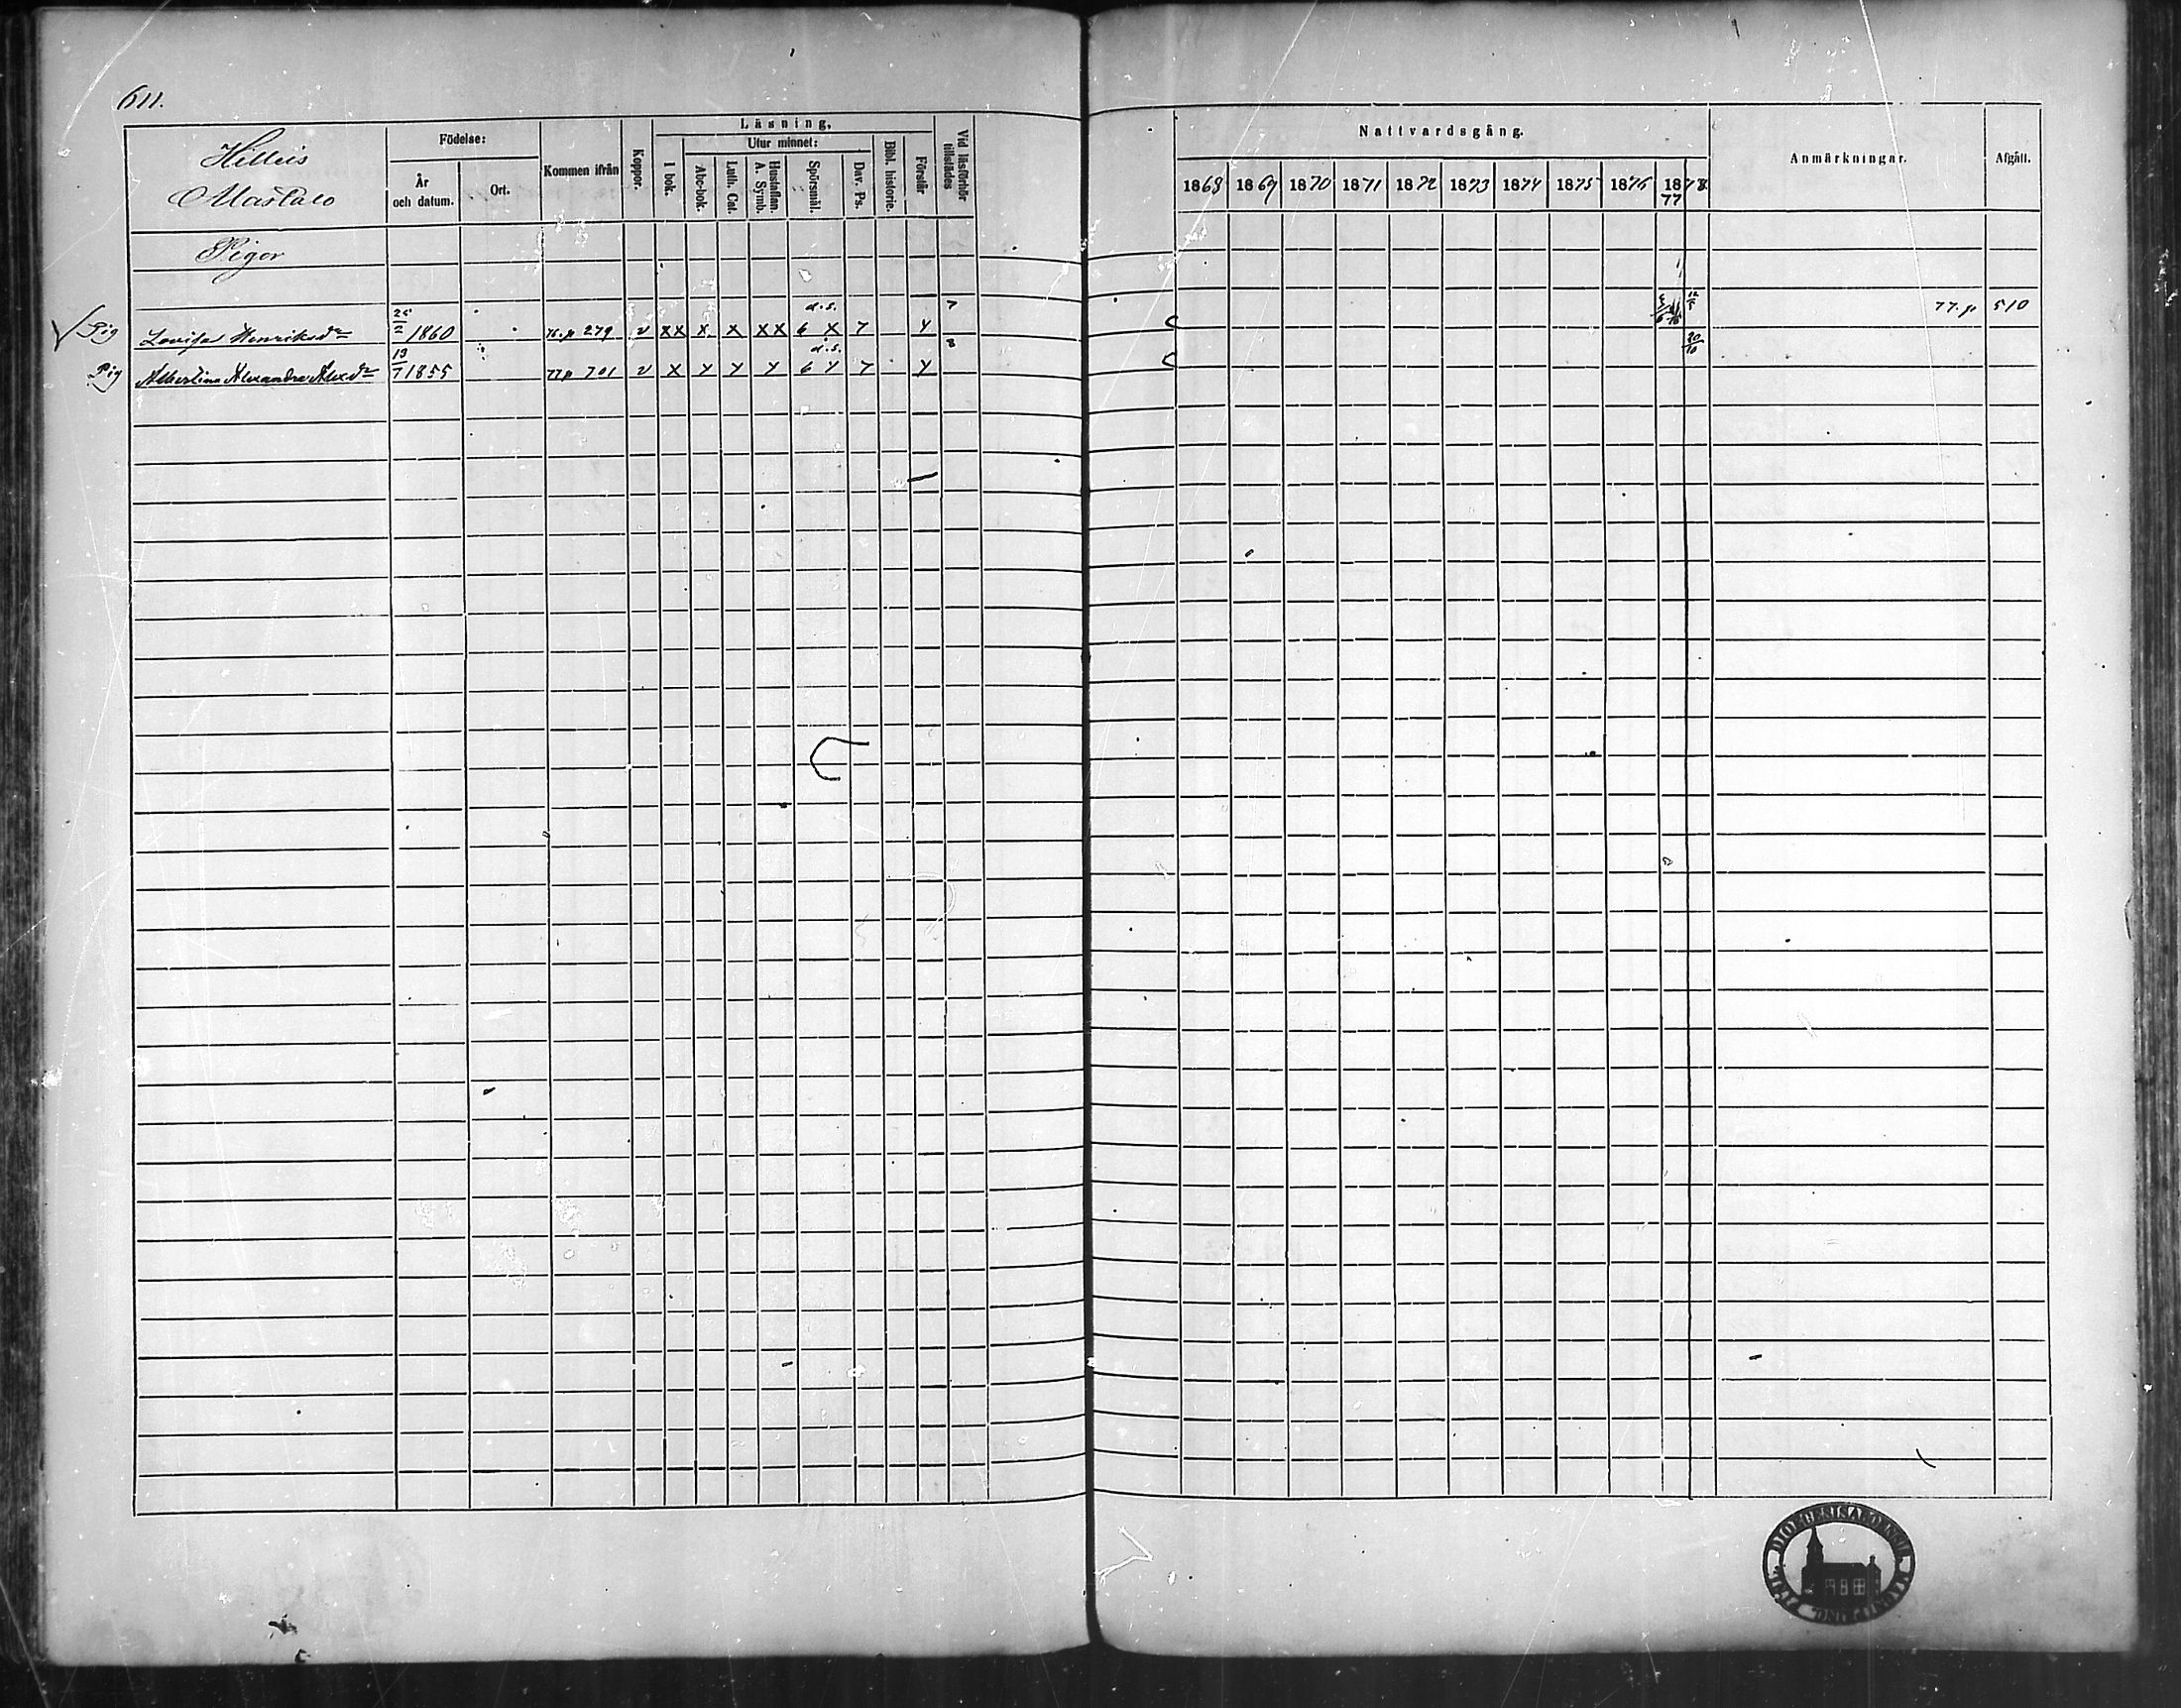 611.
Hilleis
Mastalo
Födelse:
År och datum.
Ort.
Kommen ifrån
Koppor.
Läsning,
I bok.
Utur minnet:
Abc-bok.
Luth. Cat.
Hustaflan. A. Symb.
Spörsmål.
Dav. Ps.
Bibl. historie.
Förstår
Vid läsförhör tillstädes
Nattvardsgång.
1868 1869 1870 1871 1872 1873 1874 1875 1876 1877 78
Anmärkningar.
Afgått.
Pigor
Pig Lovisa Henriksdr 25/2 1860 76.p 279 v xx x x xx d.s. 6 x 7 y 7 77.p 510
Pig Albertina Alexandra Alexdr 19/7 1855 77p 701 v x y y y d.s. 6 y 7 y 8 20/10